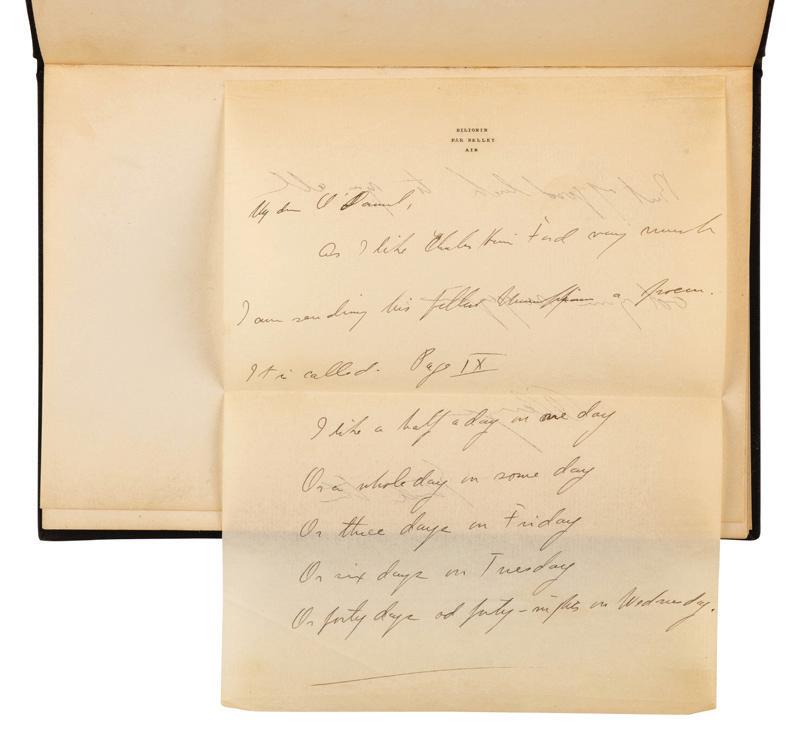 BILIGNIN
PAR BELLEY
AIN
My dear O'Daniel,
As I like Charles Henri Ford very much
I am sending his fellow a poem.
It is called. Page IX
I like a half a day on one day
Or a whole day on some day
Or three days on Friday
Or six days on Tuesday
Or forty days od forty-nights on Wednesday.